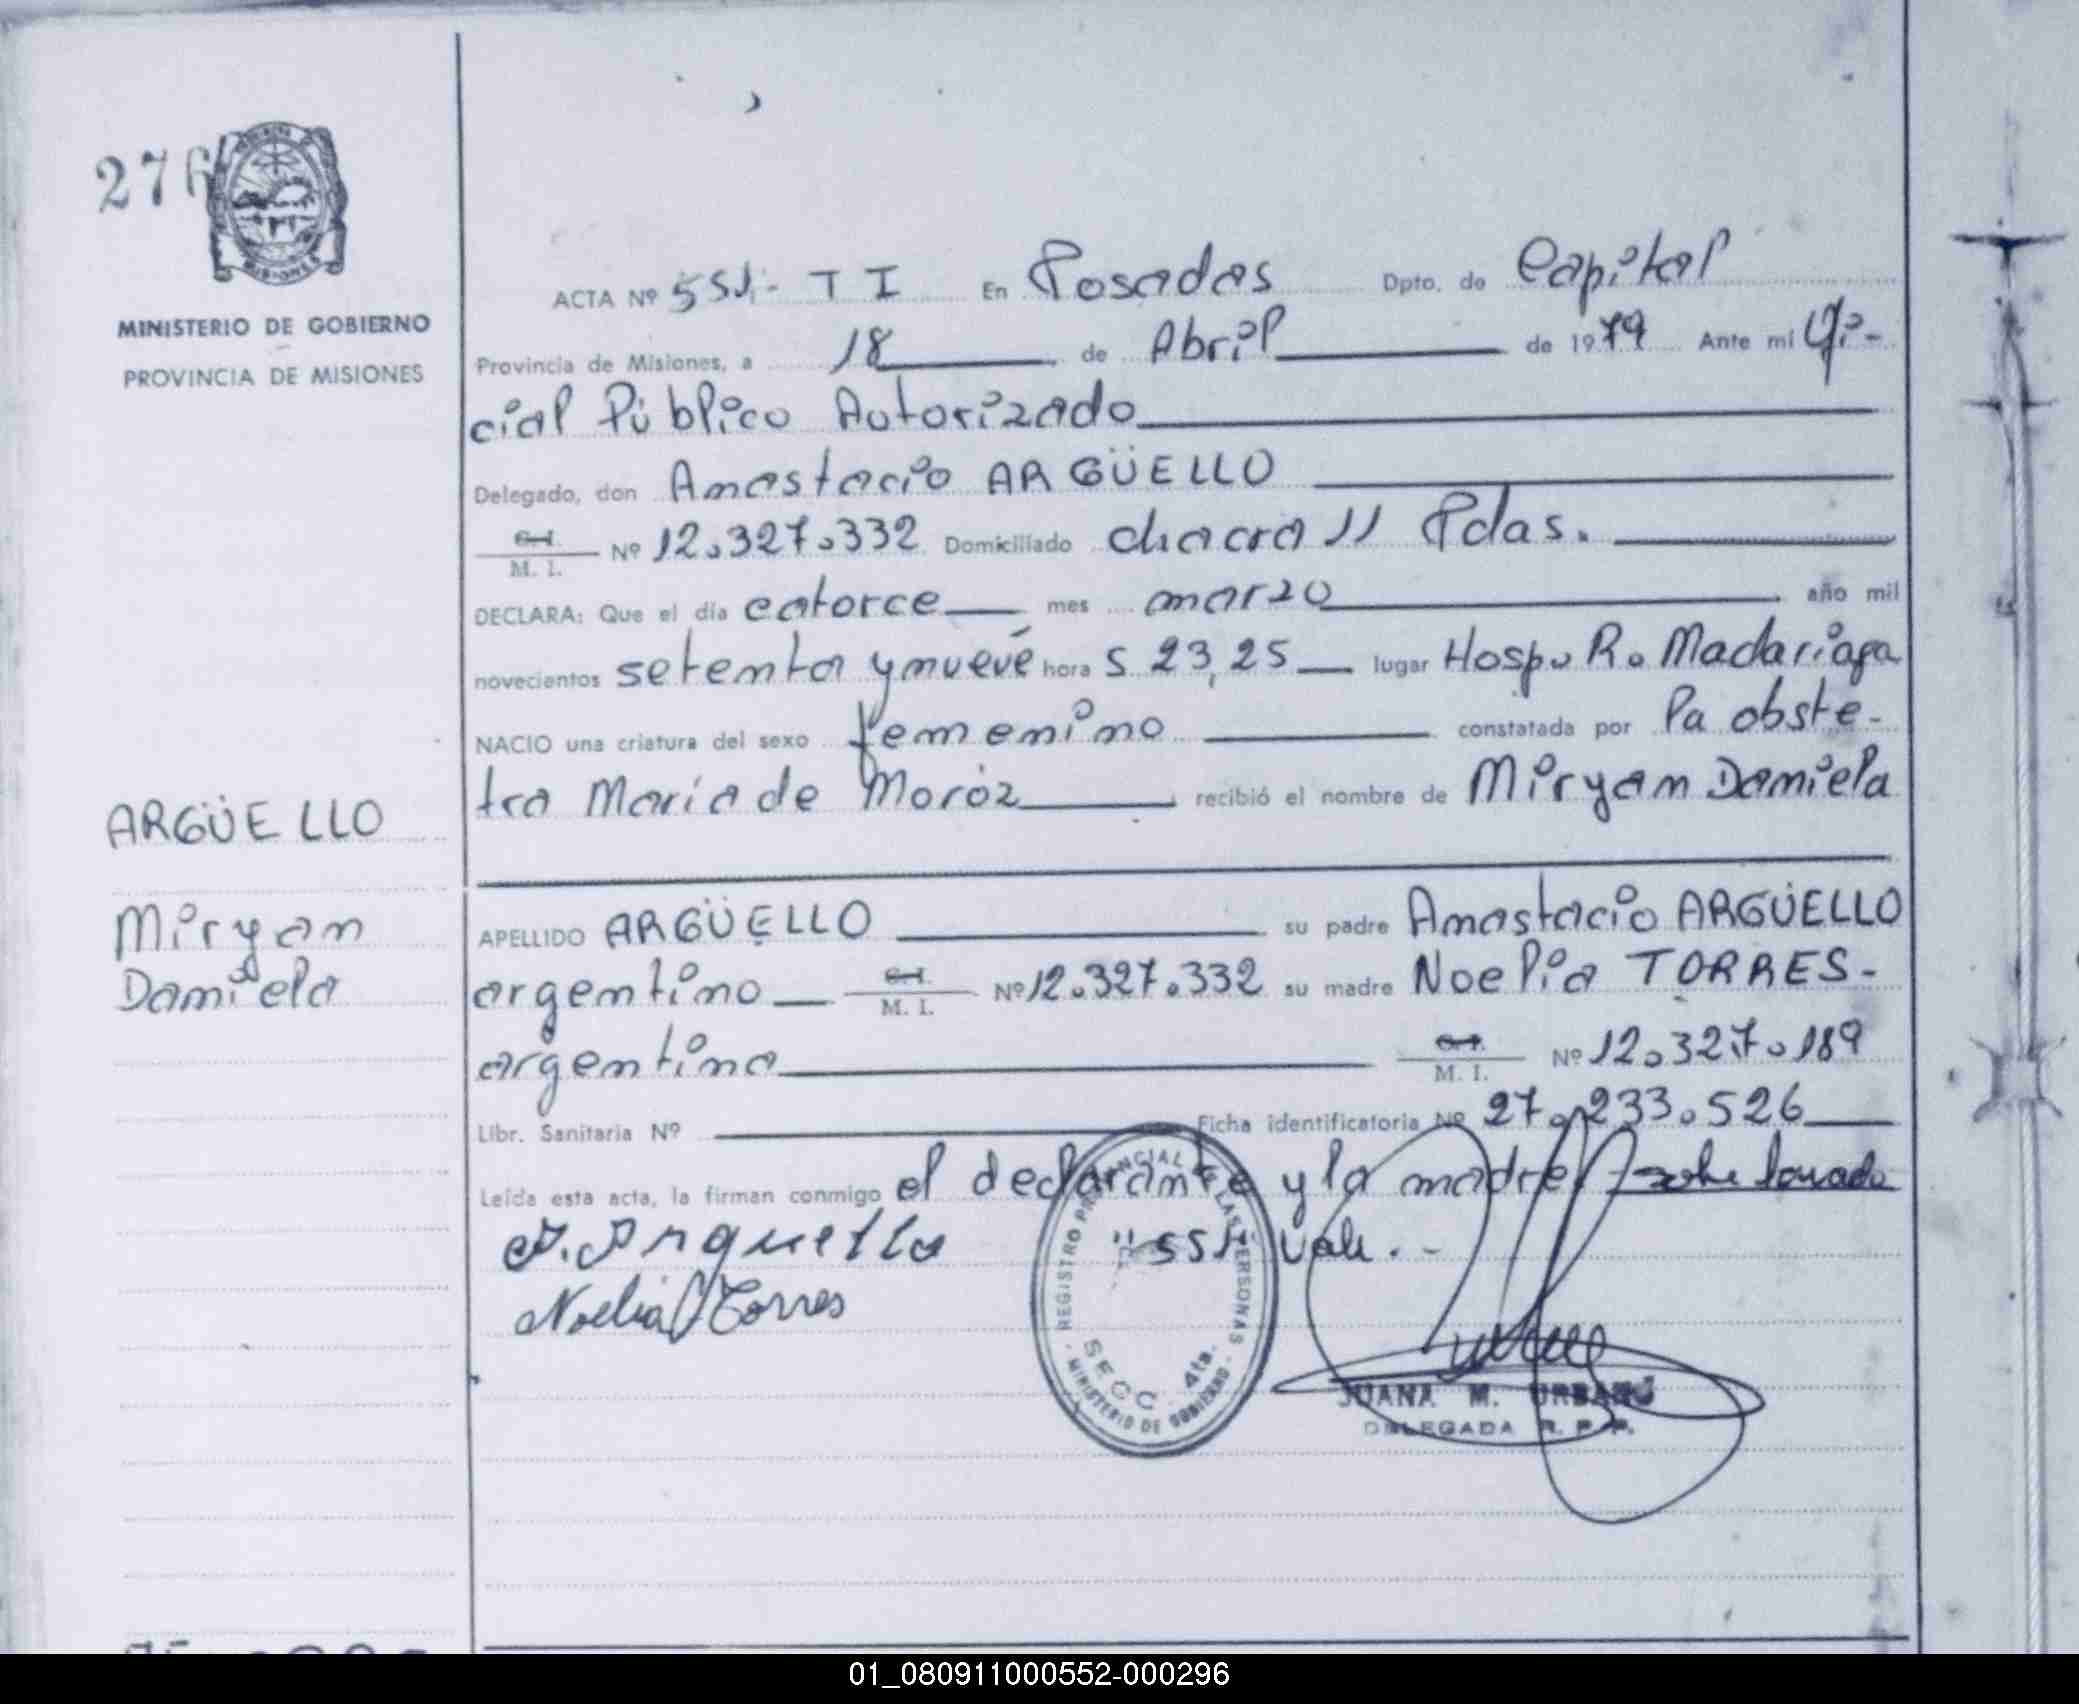 276
MISIONES
MINISTERIO DE GOBIERNO
PROVINCIA DE MISIONES
ARGÜELLO
Miryan
Daniela
ACTA Nº 551.- T I En Posadas Dpto. de Capital
Provincia de Misiones, a 18 de Abril de 1979 Ante mi Ofi-
cial Público Autorizado
Delegado, don Anastacio ARGÜELLO
C.I. M. I. Nº 12.327.332 Domiciliado chacra 11 Pdas.
DECLARA: Que el día catorce mes marzo año mil
novecientos setenta y nueve hora s 23,25 lugar Hosp. R. Madariaga
NACIO una criatura del sexo femenino constatada por la obste-
tra María de Moroz recibió el nombre de Miryam Daniela
APELLIDO ARGÜELLO su padre Anastacio ARGÜELLO
argentino C.I. M. I. Nº 12.327.332 su madre Noelia TORRES-
argentina C.I. M. I. Nº 12.327.189
Libr. Sanitaria Nº Ficha identificatoria Nº 27.233.526
Leída esta acta, la firman conmigo el declarante y la madre sobre
A. Arguello "551" Vale.-
Noelia Torres
REGISTRO PROVINCIAL DE LAS PERSONAS
SECC. 4ta.
- MINISTERIO DE GOBIERNO -
JUANA M. URBANO
DELEGADA R. P. P.
01_080911000552-000296